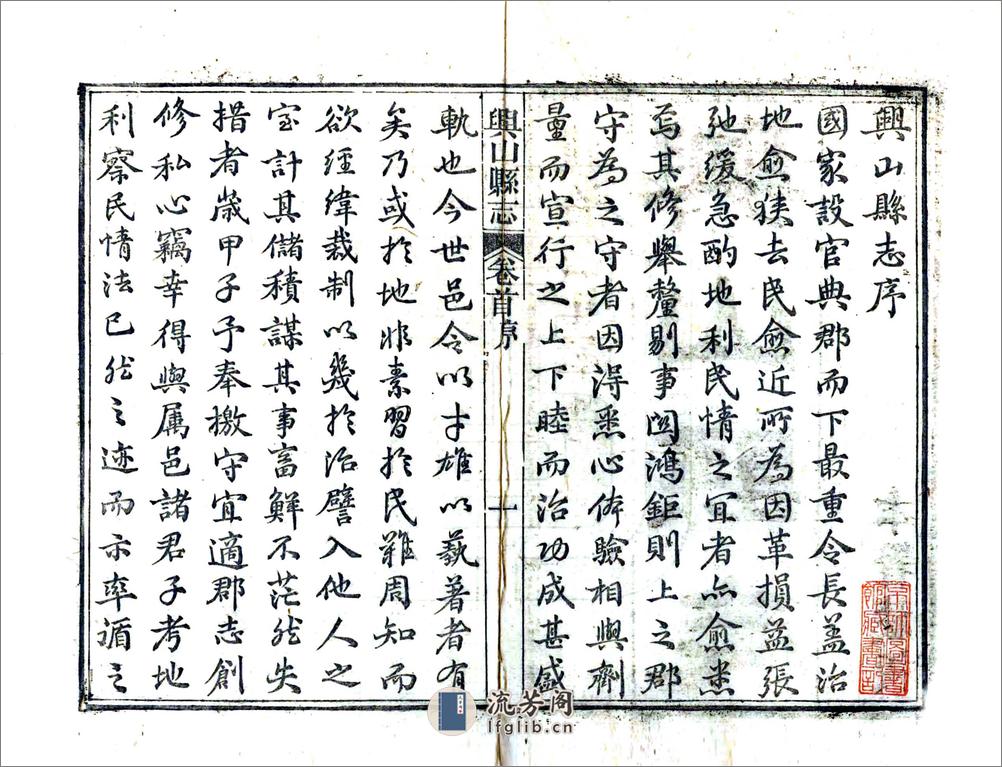 興山縣志序
國家設官典郡而下最重令長盖治
地愈狹去民愈近所為因革損益張
弛緩急酌地利民情之宜者亦愈悉
焉其修舉釐剔事関鴻鉅則上之郡
守為之守者因得悉心体驗相與劑
量而宣行之上下睦而治功成甚盛
興山縣志 卷首 序 一
軌也今世邑令以才雄以藝著者有
矣乃或於地非素習於民難周知而
欲經緯裁制以幾於治譬入他人之
室計其儲積謀其事畜鮮不茫然失
措者歲甲子予奉檄守宜適郡志創
修私心竊幸得與属邑諸君子考地
利察民情法已然之迹而示率循之
流芳阁
lfglib.cn